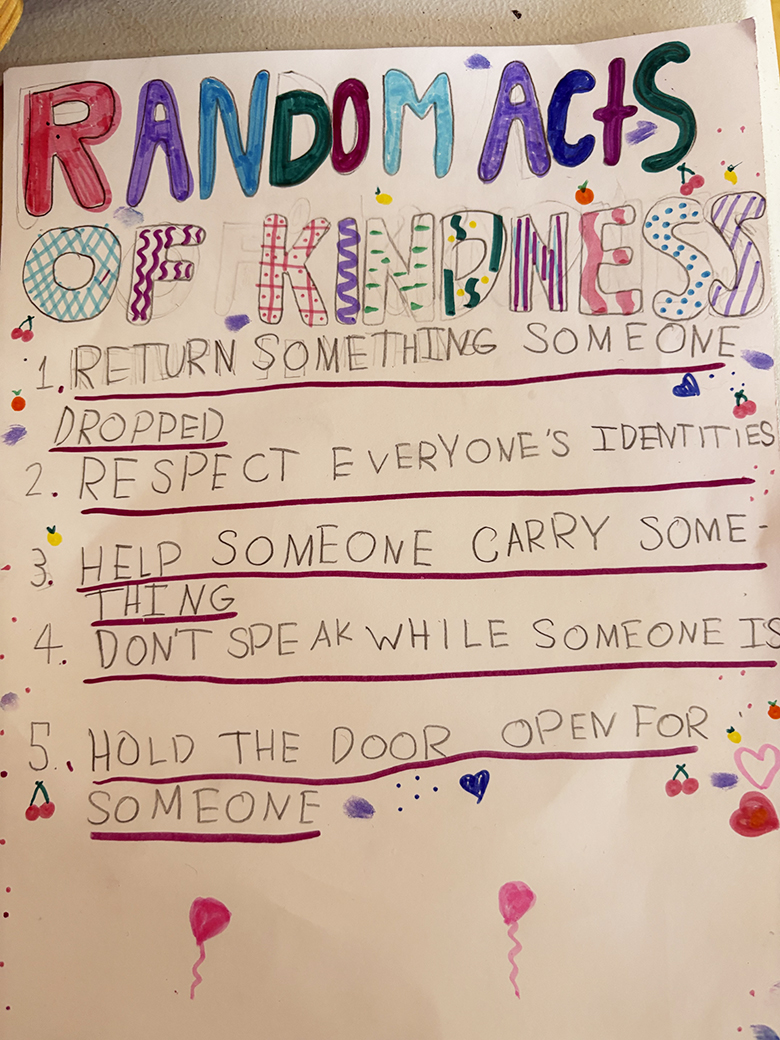 RANDOM ACTS
OF KINDNESS
1. RETURN SOMETHING SOMEONE
DROPPED
2. RESPECT EVERYONE'S IDENTITIES
3. HELP SOMEONE CARRY SOME-
THING
4. DON'T SPEAK WHILE SOMEONE IS
5. HOLD THE DOOR OPEN FOR
SOMEONE